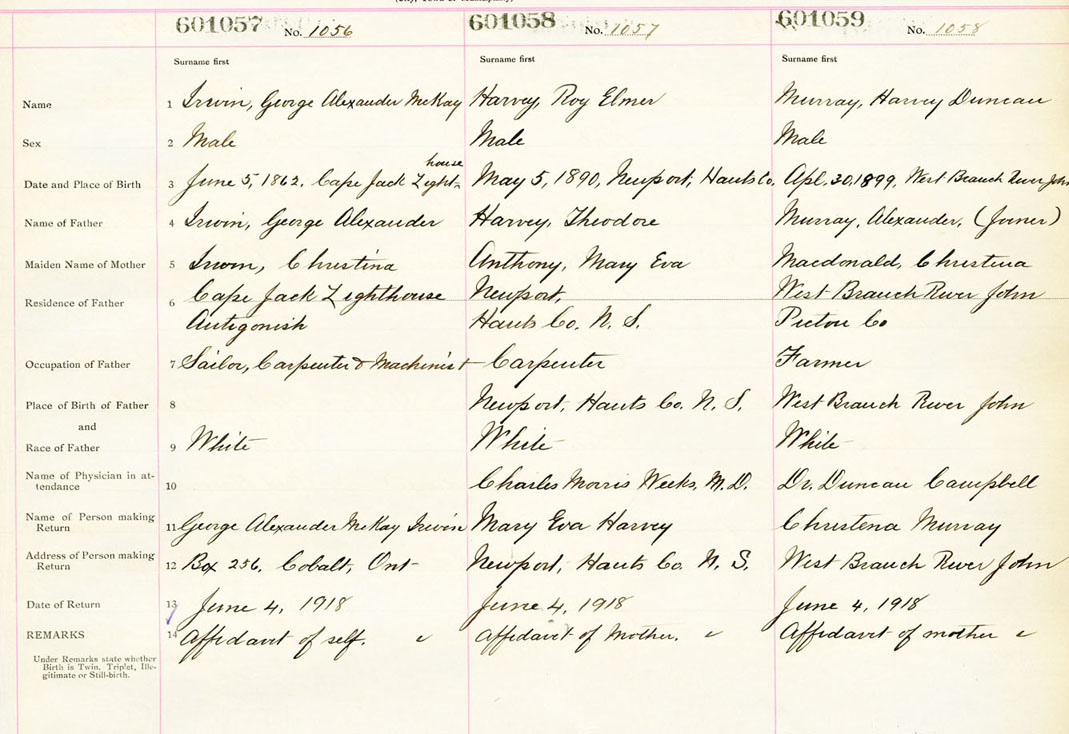 601057 No. 1056 601058 No. 1057 601059 No. 1058
Surname first Surname first Surname first
Name 1 Irwin, George Alexander McKay Harvey, Roy Elmer Murray, Harvey Duncan
Sex 2 Male Male Male
house
Date and Place of Birth 3 June 5, 1862. Cape Jack Light- May 5, 1890, Newport, Hants Co. Apl. 30, 1899, West Branch River John
Name of Father 4 Irwin, George Alexander Harvey, Theodore Murray, Alexander, (Joiner)
Maiden Name of Mother 5 Irwin, Christina Anthony, Mary Eva Macdonald, Christena
Residence of Father 6 Cape Jack Lighthouse Newport, West Branch River John
Antigonish Hants Co. N. S. Pictou Co
Occupation of Father 7 Sailor, Carpenter & Machinist Carpenter Farmer
Place of Birth of Father 8 Newport, Hants Co. N. S. West Branch River John
and
Race of Father 9 White White White
Name of Physician in at-
tendance 10 Charles Morris Weeks, M.D. Dr. Duncan Campbell
Name of Person making
Return 11 George Alexander McKay Irwin Mary Eva Harvey Christena Murray
Address of Person making
Return 12 Box 256, Cobalt, Ont Newport, Hants Co. N. S. West Branch River John
Date of Return 13 June 4, 1918 June 4, 1918 June 4, 1918
REMARKS 14 Affidavit of self. Affidavit of Mother. Affidavit of mother
Under Remarks state whether
Birth is Twin. Triplet, Ille-
gitimate or Still-birth.